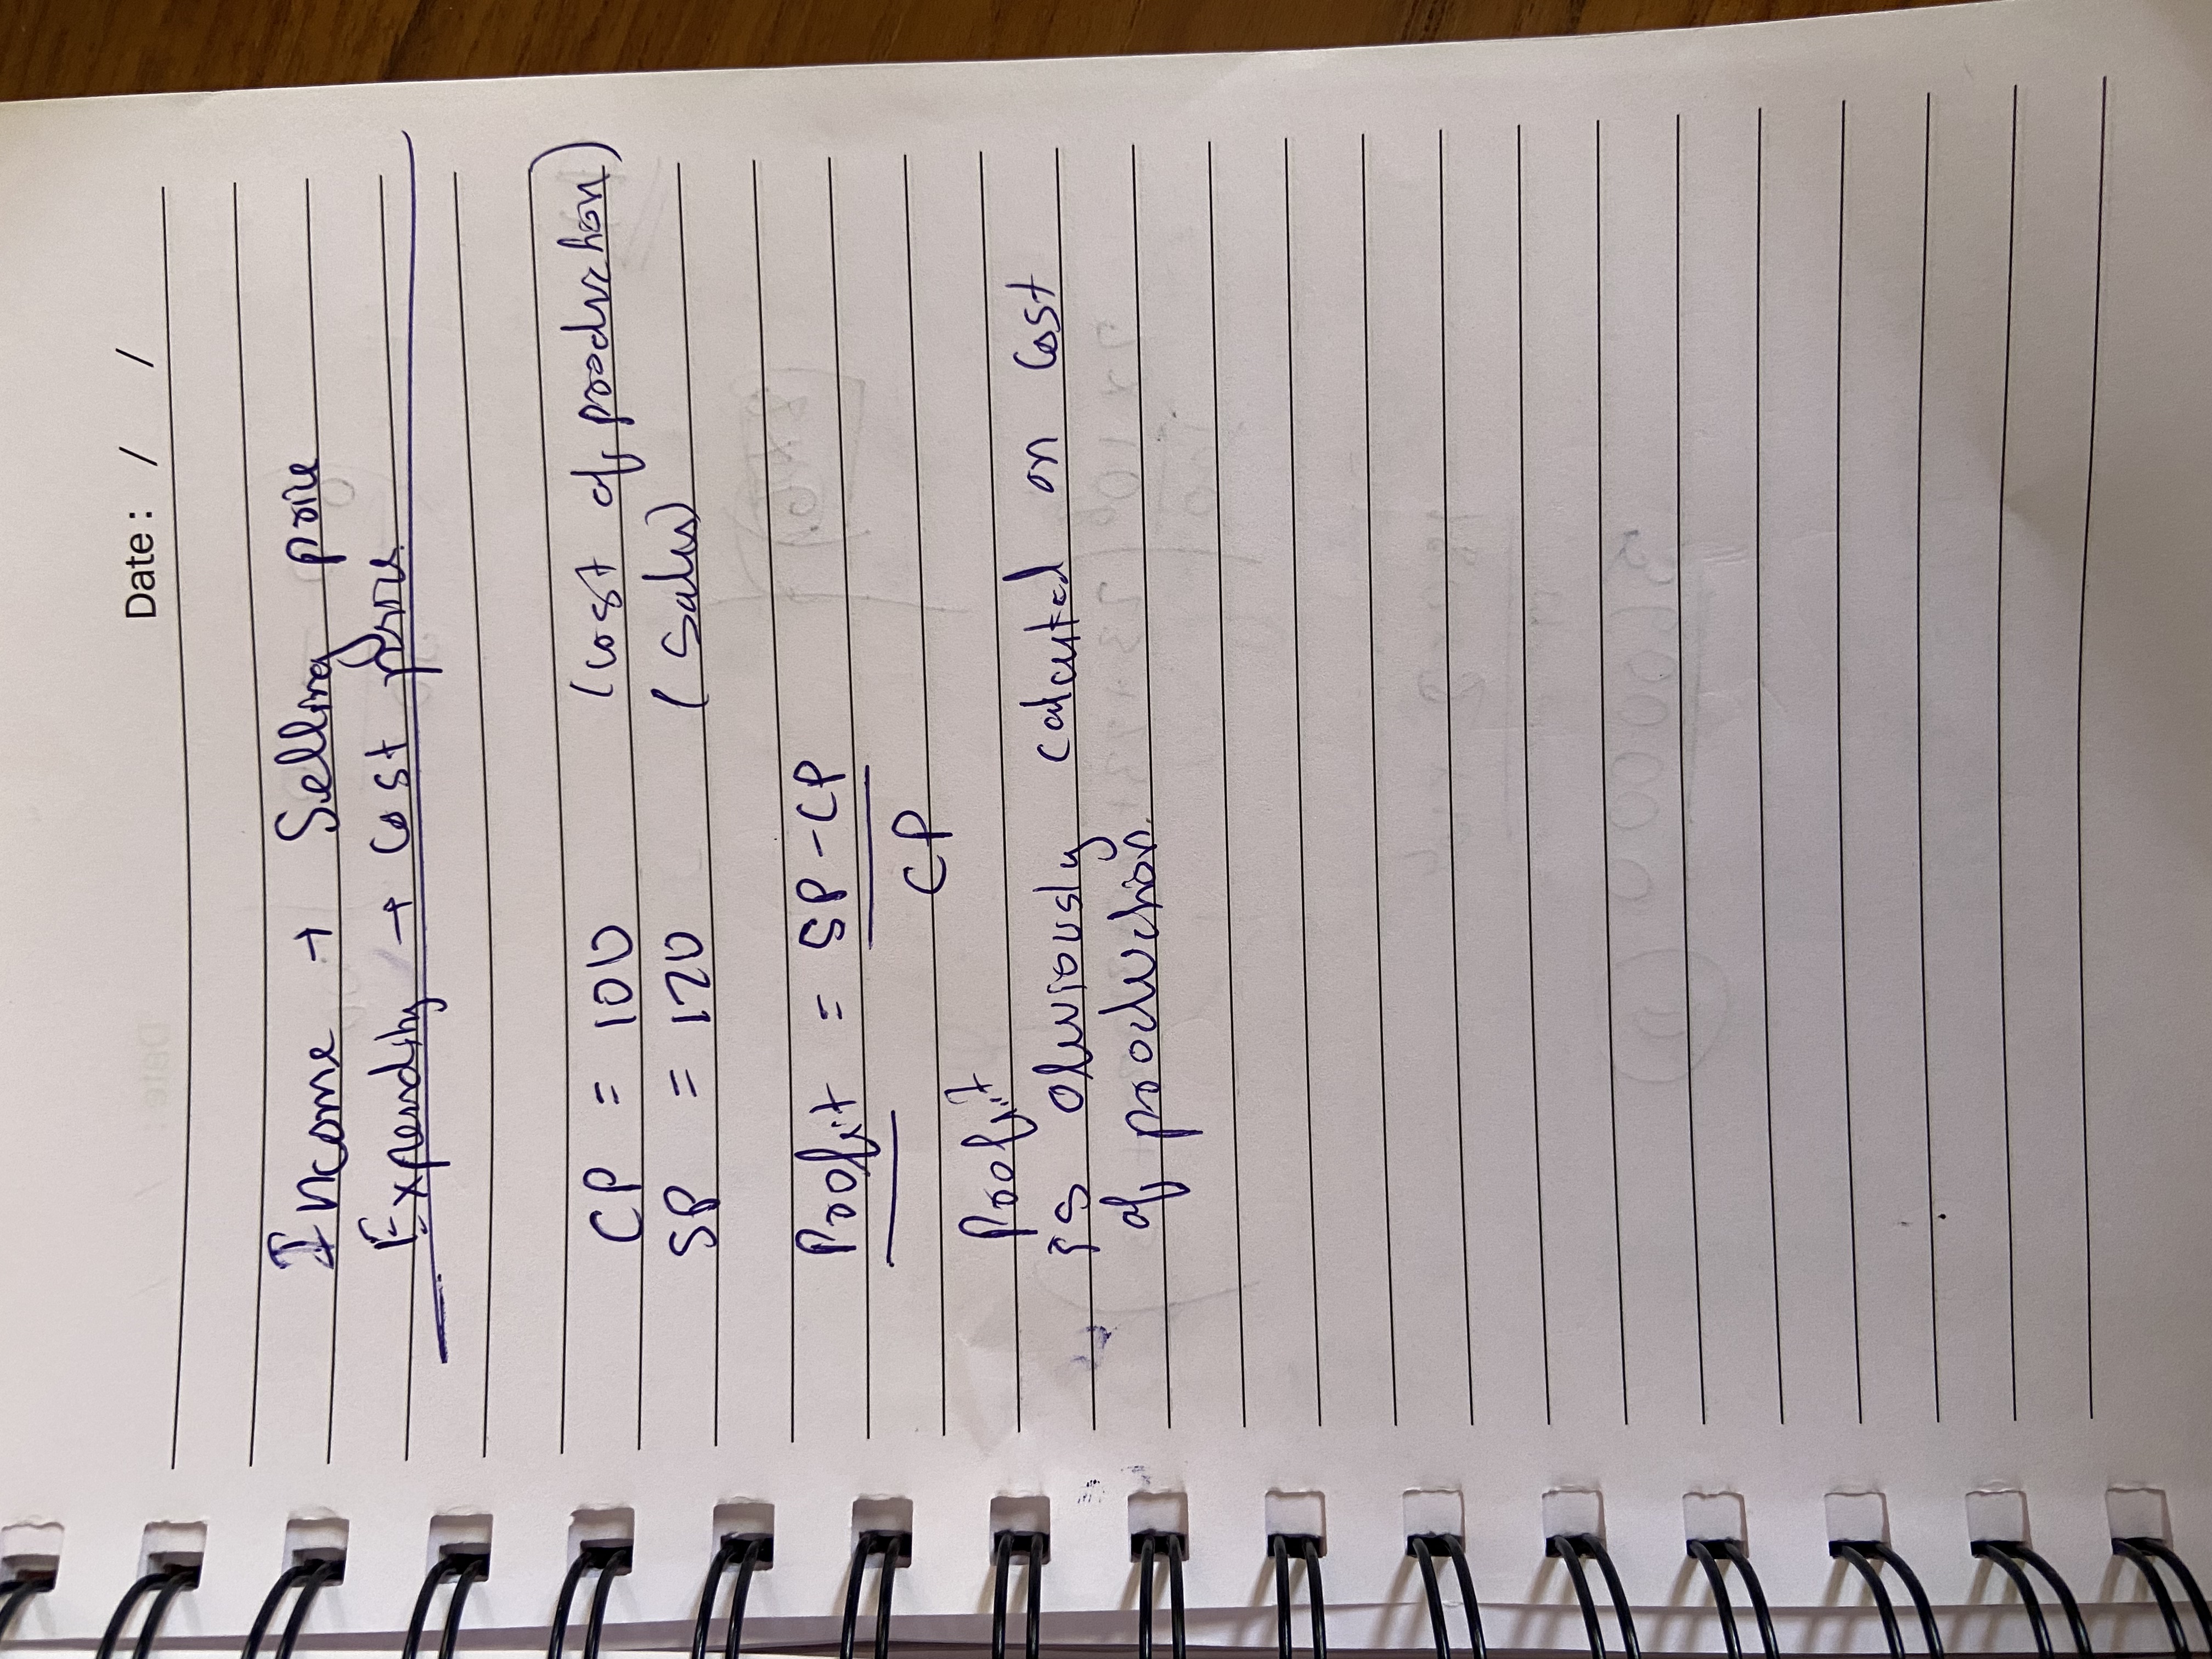 Date : / /
Income → Selling price
Expendity → Cost price
CP = 100 (Cost of production)
SP = 120 (Sales)
Profit = SP - CP
CP
Profit
is obviously calcuted on Cost
of production.